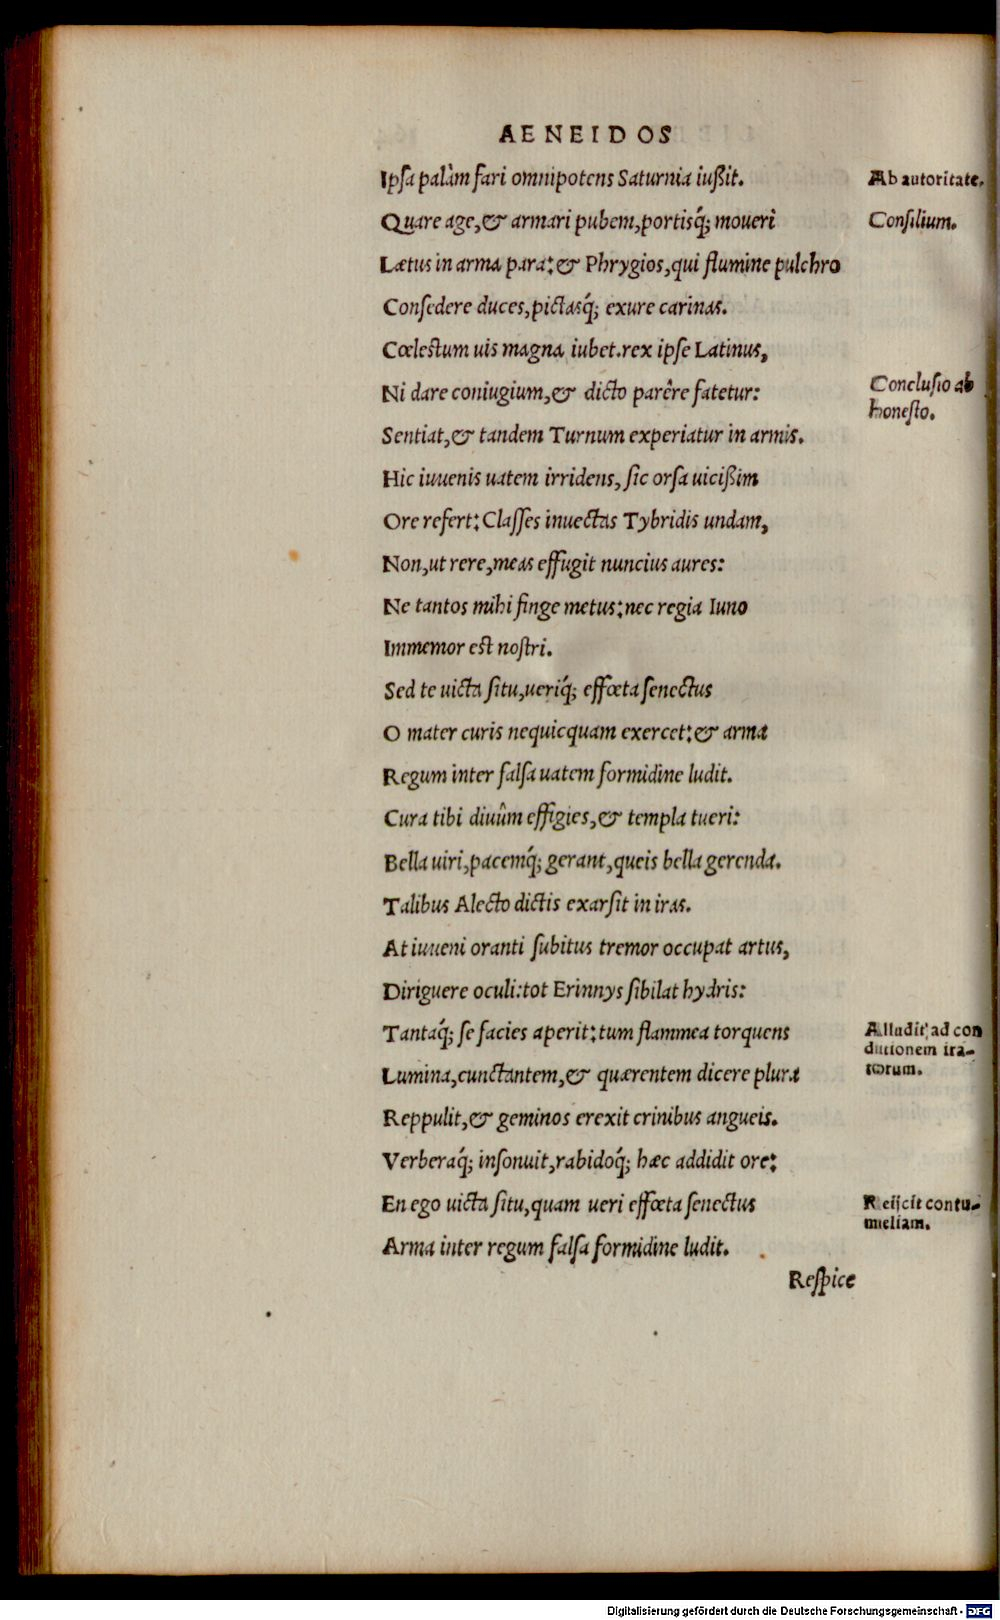 AENEIDOS
Ipſa palàm fari omnipotens Saturnia iußit.
Ab autoritate.
Quare age,& armari pubem,portisq́; moueri
Conſilium.
Lætus in arma para:& Phrygios,qui flumine pulchro
Conſedere duces,pictasq́; exure carinas.
Cœlestum uis magna iubet.rex ipſe Latinus,
Ni dare coniugium,& dicto parêre fatetur:
Concluſio ab
honeſto.
Sentiat,& tandem Turnum experiatur in armis.
Hic iuuenis uatem irridens, ſic orſa uicißim
Ore refert: Claſſes inuectas Tybridis undam,
Non,ut rere,meas effugit nuncius aures:
Ne tantos mihi finge metus:nec regia Iuno
Immemor est noſtri.
Sed te uicta ſitu,ueriq́; effœta ſenectus
O mater curis nequicquam exercet:& arma
Regum inter falſa uatem formidine ludit.
Cura tibi diuûm effigies,& templa tueri:
Bella uiri,pacemq́; gerant,queis bella gerenda.
Talibus Alecto dictis exarſit in iras.
At iuueni oranti ſubitus tremor occupat artus,
Diriguere oculi:tot Erinnys ſibilat hydris:
Tantaq́; ſe facies aperit:tum flammea torquens
Alludit ad con
ditionem ira-
torum.
Lumina,cunctantem,& quærentem dicere plura
Reppulit,& geminos erexit crinibus angueis.
Verberaq́; inſonuit,rabidoq́; hæc addidit ore:
En ego uicta ſitu,quam ueri effœta ſenectus
Reijcit contu-
meliam.
Arma inter regum falſa formidine ludit.
Reſpice
Digitalisierung gefördert durch die Deutsche Forschungsgemeinschaft - DFG